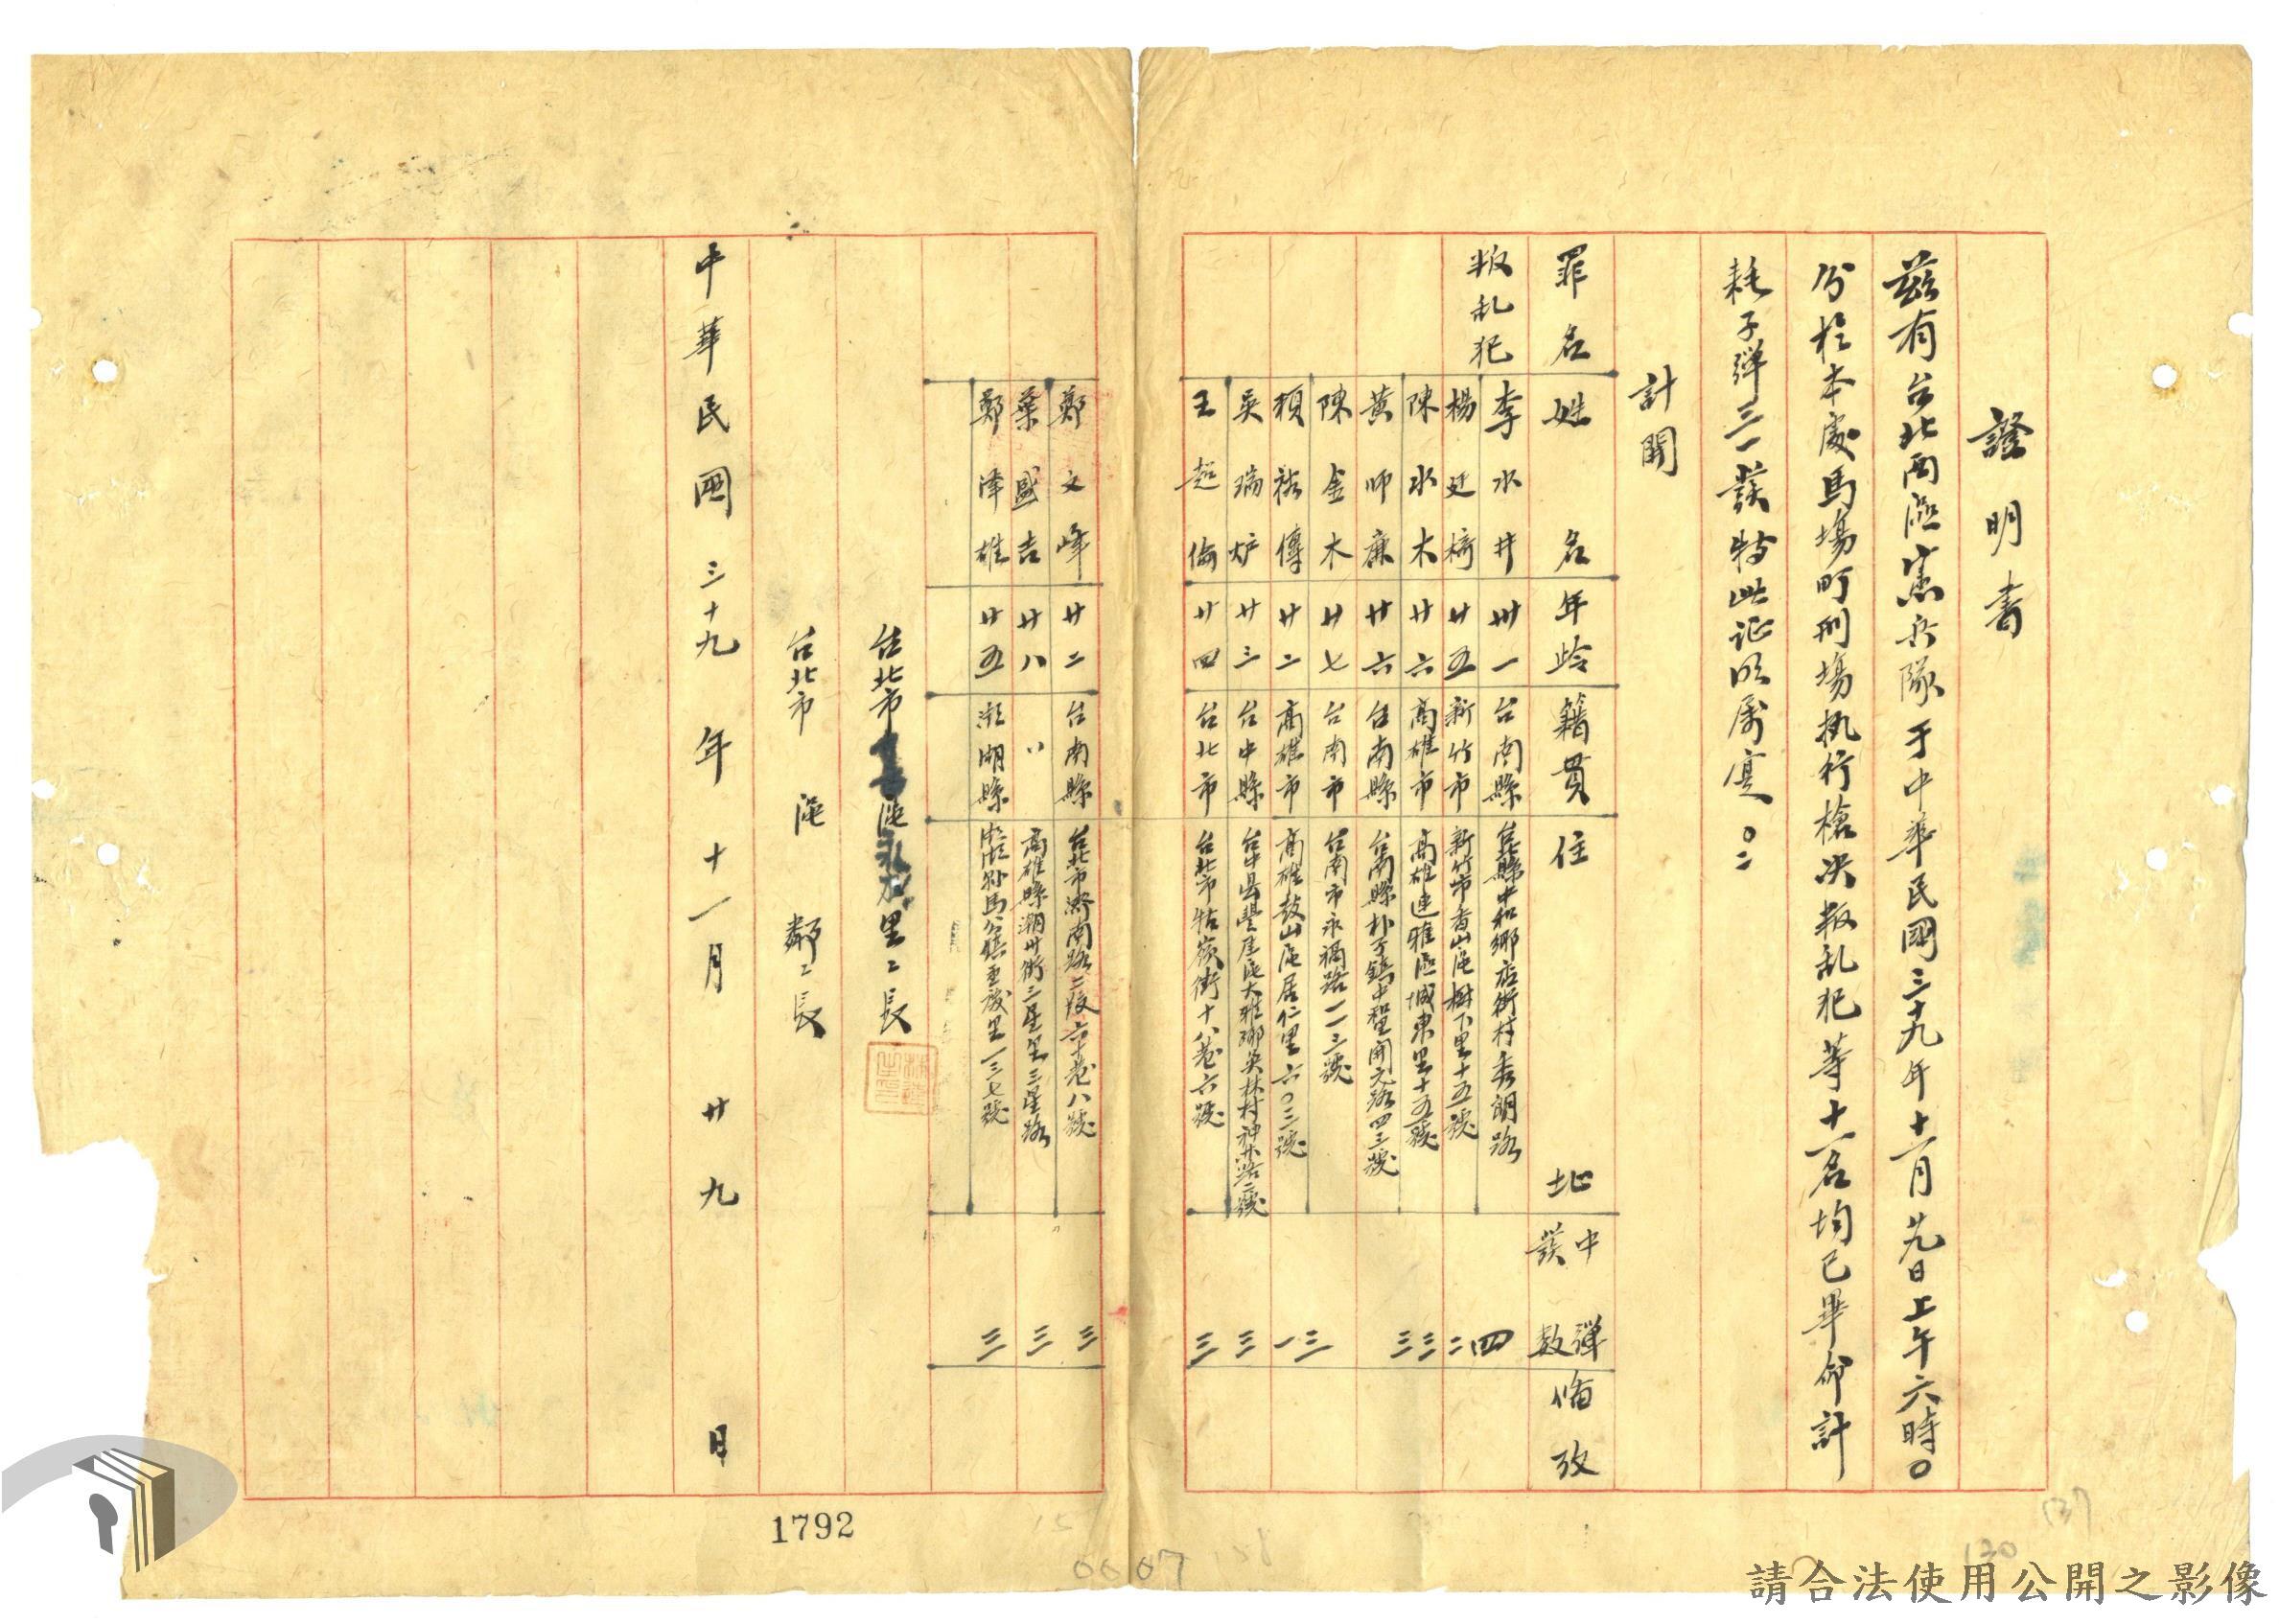 證明書
茲有台北西區憲兵隊于中華民國三十九年十一月廿九日上午六時〇
分於本處馬場町刑場執行槍决叛乱犯等十一名均已畢命計
耗子彈三一發特此证明屬實。
計開
罪名 姓名 年岭 籍貫 住址 中彈發数 俻攷
叛乱犯 李水井 卅一 台南縣 中和鄉店街村秀朗路 四
楊廷椅 廿五 新竹市 新竹市香山區樹下里十五號 二
陳水木 廿六 高雄市 高雄連雅區城東里十五號 三
黃师廉 廿六 台南縣 台南縣朴子鎮中聖開元路四三號 三
陳金木 廿七 台南市 台南市永福路一一三號 三
賴裕傳 廿二 高雄市 高雄鼓山區居仁里六〇三號 一
吳瑞炉 廿三 台中縣 台中县豐原區大雅鄉 村神 二號 三
王超倫 廿四 台北市 台北市牯嶺街十八巷六號 三
鄭文峰 廿二 台南縣 台北市濟南路二段六十巷八號 三
葉盛吉 廿八 〃 高雄縣潮州街三星里三星路 三
鄭澤雄 廿五 澎湖縣 澎湖 馬公鎮重慶里一三七號 三
台北市 區 里里長
台北市 區 鄰鄰長
中華民國三十九年十一月廿九日
1792
0007
158
137
130
請合法使用公開之影像